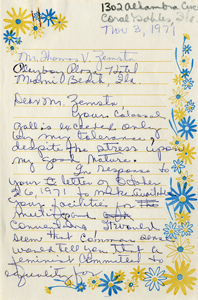 1302 Alhambra Circle
Coral Gables, Fla
Nov 3, 1971
Mr. Thomas V. Zemsta
Playboy Plaza Hotel
Miami Beach, Fla
Dear Mr. Zemsta
Your Colossal
Gall is exceeded only
by my tolerance,
despite the stress upon
my good nature.
In Response to
your letter of October
26, 1971 to make available
your facilities for
Conventions I would
seem that common sense
would tell you that a
feminist committed to
equality for